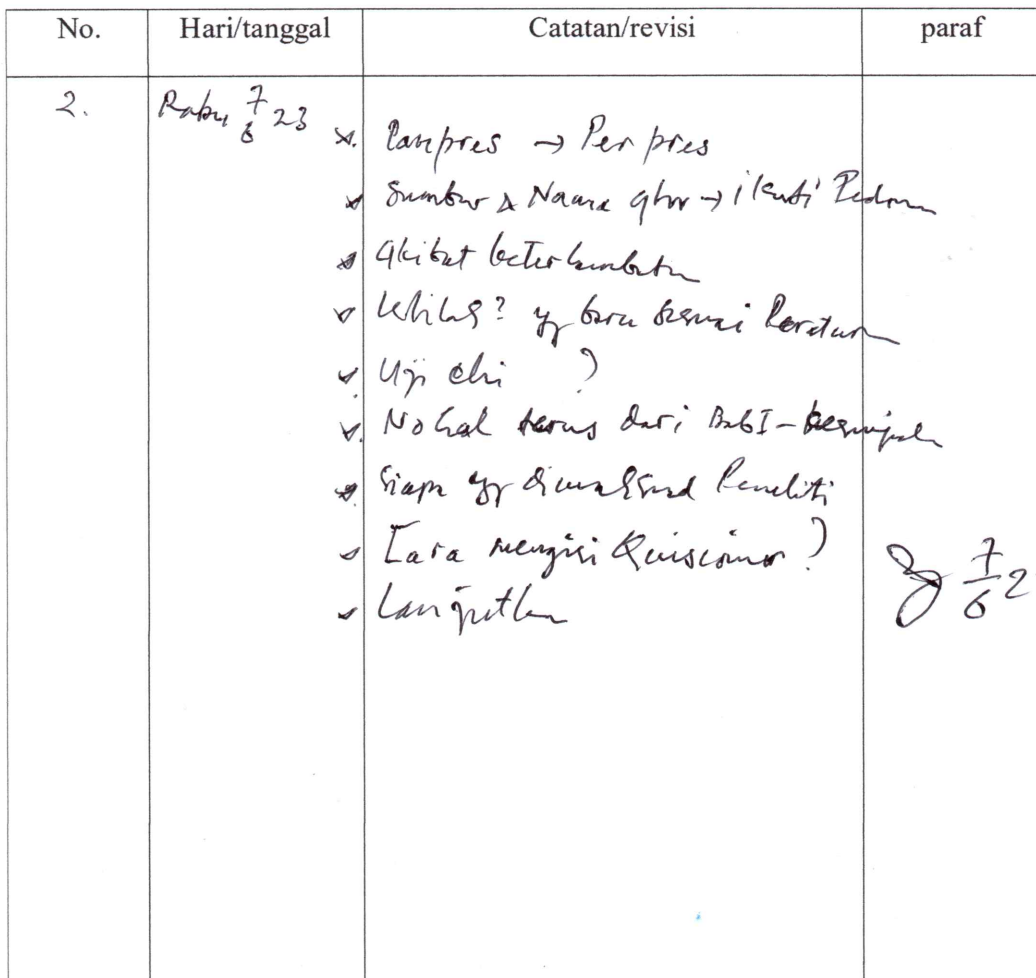 No. Hari/tanggal Catatan/revisi paraf
2. Rabu 7/6 23
Panpres → Per pres
Sumber & Nama gbr → ikuti Pedoman
akibat keterlambatan
yg baru sesuai Peraturan
Uji chi ?
No hal terus dari Bab I - kesimpulan
Siapa yg dimaksud Peneliti
Cara mengisi Quisioner ?
Lanjutkan
7/6 2